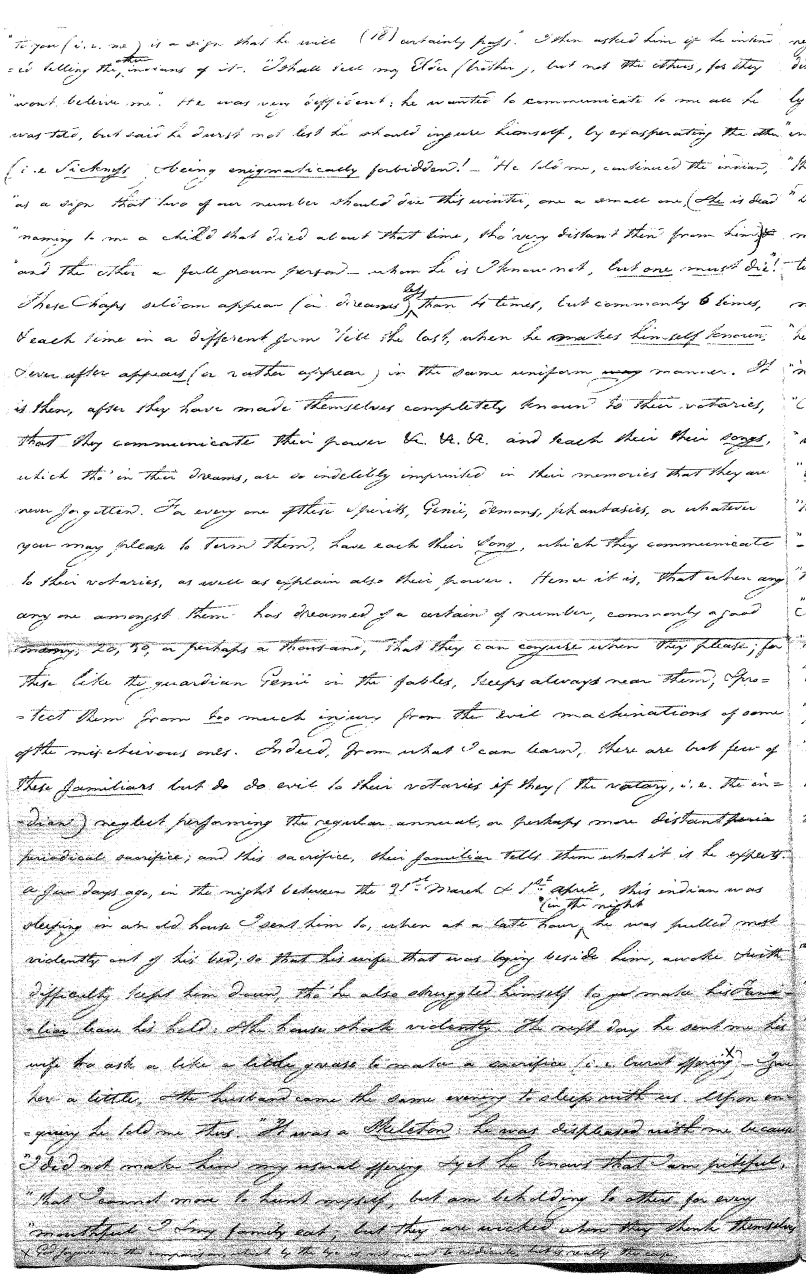 "to you (i.e. me) is a sign that he will (18) certainly pass." I then asked him if he intend
=ed telling the other indians of it. "I shall tell my Elder (brother), but not the others, for they
"wont beleive me". He was very diffident: he wanted to communicate to me all he
was told, but said he durst not lest he should injure himself, by exasperating the other
(i.e. Sickness) being enigmatically forbidden! — "He told me, continued the indian,
"as a sign that two of our number should die this winter, one a small one, (she is dead
"naming to me a child that died about that time, tho' very distant then from him)
"and the other a full grown person — whom he is I know not, but one must die"!
These Chaps seldom appear (in dreams) less than 4 times, but commonly 6 times,
& each time in a different form 'till the last, when he makes himself known;
& ever after appears (or rather appear) in the same uniform way manner. It
is then, after they have made themselves completely known to their votaries,
that they communicate their power &c. &c. &c. and teach their their songs,
which tho' in their dreams, are so indelibly imprinted in their memories that they are
never forgotten. For every one of these Spirits, Genii, demons, phantasies, or whatever
you may please to term them, have each their Song, which they communicate
to their votaries, as well as explain also their power. Hence it is, that when any
any one amongst them has dreamed of a certain of number, commonly a good
many, 20, 30, or perhaps a thousand, that they can conjure when they please; for
these like the guardian Genii in the fables, keeps always near them, & pro=
=tect them from too much injury from the evil machinations of some
of the mischeivous ones. Indeed, from what I can learn, there are but few of
these familiars but do do evil to their votaries if they (the votary, i.e. the in=
=dian) neglect performing the regular annual, or perhaps more distant
periodical sacrifice; and this sacrifice, their familiar tells them what it is he expects.
A few days ago, in the night between the 31st March & 1st april, this indian was
sleeping in an old house I sent him to, when at a late hour (in the night he was pulled most
violently out of his bed; so that his wife that was lying beside him, awoke & with
difficulty kept him down, tho' he also struggled himself to make his Fami=
=liar leave his hold: & the house shook violently. The next day he sent me his
wife to ask a like a little grease to make a sacrifice (i.e. burnt offering X) — I gave
her a little, & the husband came the same evening to sleep with us. Upon en=
=quiry he told me thus. "It was a Skeleton: he was displeased with me because
"I did not make him my usual offering & yet he knows that I am pitiful,
"that I cannot move to hunt myself, but am beholding to others for every
"mouthful I & my family eat; but they are wicked when they think themselves
X God forgive me the comparison, which by the bye is not meant to ridicule, but is really the case.